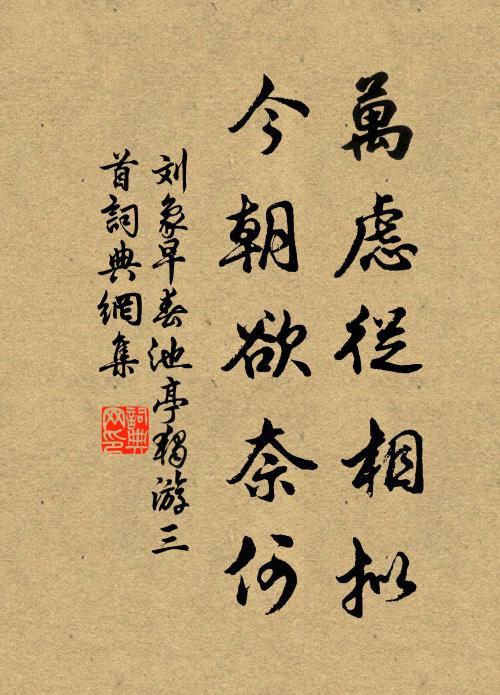 萬慮從相拟
今朝欲奈何
刘象早春池亭獨游三
首詞典網集
詞典網印